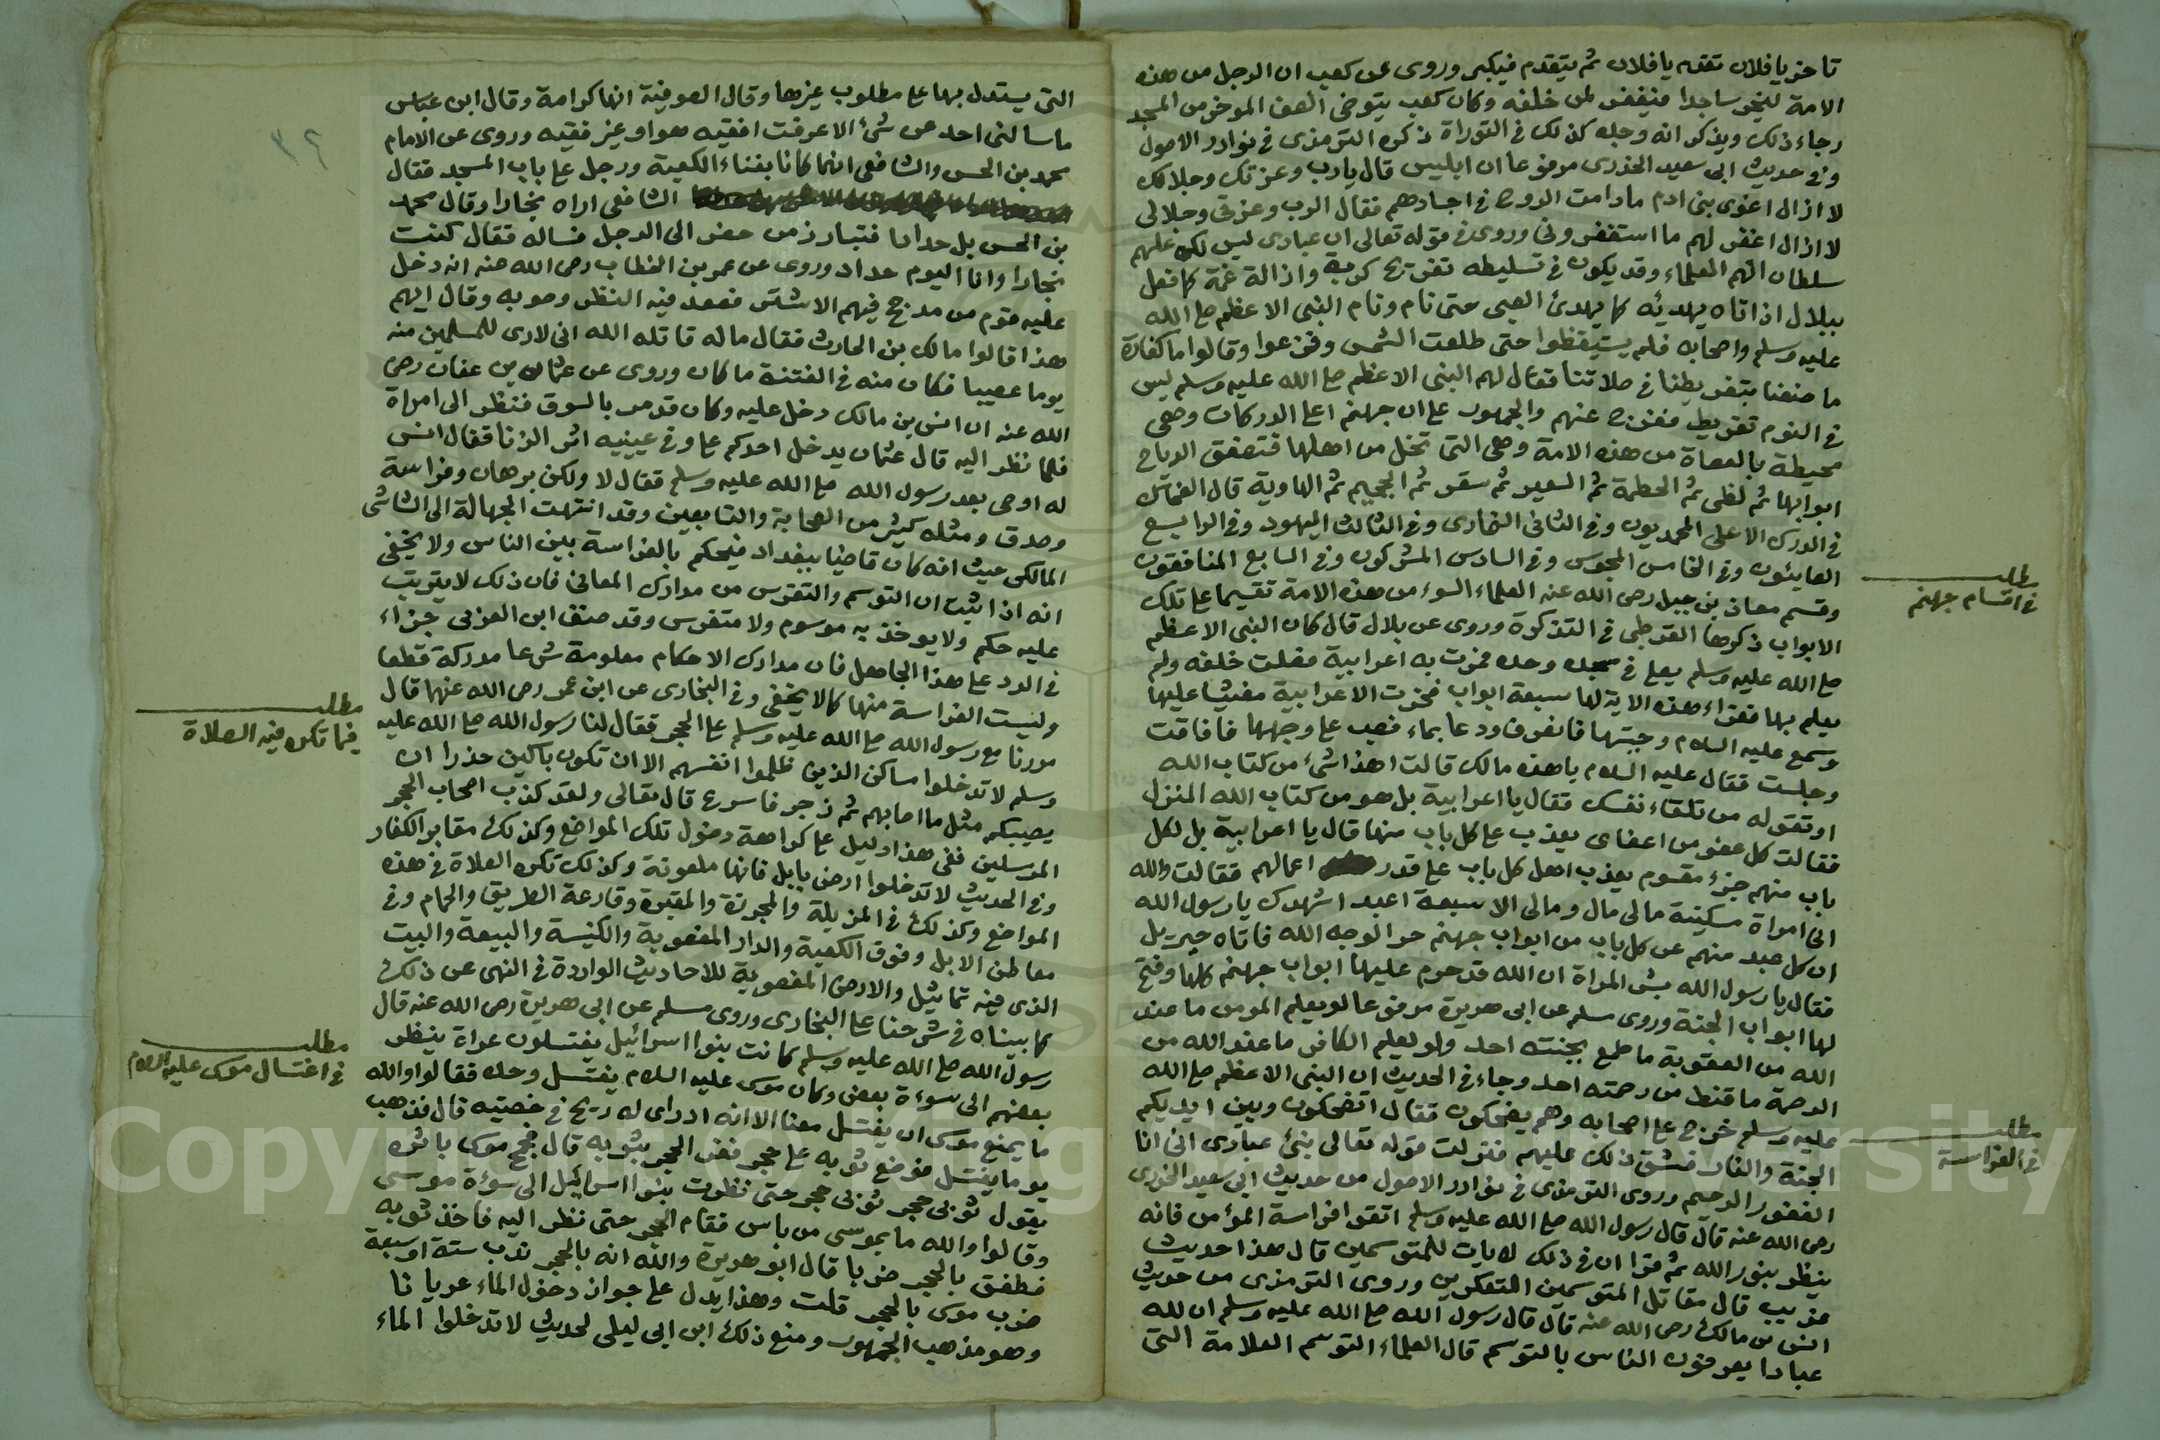 تاخر يا فلان تقدم يا فلان ثم يتقدم فيكبر وروى عن كعب ان الرجل من هذه
الامة ليخر ساجدا فيغفر لمن خلفه وكان كعب يتوخى الصف الموخر من المسجد
رجاء ذلك ويذكر انه وجده كذلك في التوراة ذكره الترمذي في نوادر الاصول
وفي حديث ابى سعيد الخدرى مرفوعا ان ابليس قال يا رب وعزتك وجلالك
لا ازال اغوى بنى ادم ما دامت الروح في اجسادهم فقال الرب وعزتى وجلالى
لا ازال اغفر لهم ما استغفرونى وروى في قوله تعالى ان عبادى ليس لك عليهم
سلطان انهم العلماء وقد يكون في تسليطه تفريج كربة وازالة غمة كما فعل
ببلال اذ اتاه يهديئه كما يهدئ الصبى حتى نام ونام النبى الاعظم صلى الله
عليه وسلم واصحابه فلم يستيقظوا حتى طلعت الشمس وفزعوا وقالوا ما كفارة
ما صنعنا بتفريطنا في صلاتنا فقال لهم النبى الاعظم صلى الله عليه وسلم ليس
في النوم تفريط ففرح عنهم والجمهور على ان جهنم اعلا الدركات وهى
محيطة بالعصاة من هذه الامة وهى التى تخلى من اهلها فتصفق الرياح
ابوابها ثم لظى ثم الحطمة ثم السعير ثم سقر ثم الجحيم ثم الهاوية قال الضحاك
في الدرك الاعلى المحمديون وفي الثانى النصارى وفي الثالث اليهود وفي الرابع
الصابئون وفي الخامس المجوس وفي السادس المشركون وفي السابع المنافقون
وقسم معاذ بن جبل رضى الله عنه العلماء السوء من هذه الامة تقسيما على تلك
الابواب ذكرها القرطبى في التذكرة وروى عن بلال قال كان النبى الاعظم
صلى الله عليه وسلم يصلى في مسجده وحده فمرت به اعرابية فصلت خلفه ولم
يعلم بها فقراء هذه الاية لها سبعة ابواب فخرت الاعرابية مغشيا عليها
وسمع عليه السلام وجبتها فانصرف ودعا بماء فصب على وجهها فافاقت
وجلست فقال عليه السلام يا هذه مالك قالت اهذا شئ من كتاب الله
او تقوله من تلقاء نفسك فقال يا اعرابية بل هو من كتاب الله المنزل
فقالت كل عضو من اعضاى يعذب على كل باب منها قال يا اعرابية بل لكل
باب منهم جزء مقسوم يعذب اهل كل باب على قدر اعمالهم فقالت والله
انى امراة مسكينة مالى مال ومالى الا سبعة اعبد اشهدك يا رسول الله
ان كل عبد منهم عن كل باب من ابواب جهنم حر لوجه الله فاتاه جبريل
فقال يا رسول الله بشر المراة ان الله قد حرم عليها ابواب جهنم كلها وفتح
لها ابواب الجنة وروى مسلم عن ابى هريرة مرفوعا لو يعلم المومن ما عند
الله من العقوبة ما طمع بجنته احد ولو يعلم الكافر ما عند الله من
الرحمة ما قنط من رحمته احد وجاء في الحديث ان النبى الاعظم صلى الله
عليه وسلم خرج على اصحابه وهم يضحكون فقال اتضحكون وبين ايديكم
الجنة والنار فشق ذلك عليهم فنزلت قوله تعالى نبئ عبادى انى انا
الغفور الرحيم وروى الترمذى في نوادر الاصول من حديث ابى سعيد الخدرى
رضى الله عنه قال قال رسول الله صلى الله عليه وسلم اتقوا فراسة المؤمن فانه
ينظر بنور الله ثم قرا ان في ذلك لايات للمتوسمين قال هذا حديث
غريب قال مقاتل المتوسمين المتفكرين وروى الترمذى من حديث
انس بن مالك رضى الله عنه قال قال رسول الله صلى الله عليه وسلم ان لله
عبادا يعرفون الناس بالتوسم قال العلماء التوسم العلامة التى
مطلب
في اقسام جهنم
مطلب
في الفراسة
التى يستدل بها على مطلوب غيرها وقال الصوفية انها كرامة وقال ابن عباس
ما سالنى احد عن شئ الا عرفت افقيه هو او غير فقيه وروى عن الامام
محمد بن الحسن والشافعى انهما كانا بفناء الكعبة ورجل على باب المسجد فقال
الشافعى اراه نجارا وقال محمد
بن الحسن بل حدادا فتبادر من حضر الى الرجل فساله فقال كنت
نجارا وانا اليوم حداد وروى عن عمر بن الخطاب رضى الله عنه انه دخل
عليه قوم من مدحج فيهم الاشتر فصعد فيه النظر وصوبه وقال ايهم
هذا قالوا مالك بن الحارث فقال ماله قاتله الله انى لارى للمسلمين منه
يوما عصيبا فكان منه في الفتنة ما كان وروى عن عثمان بن عفان رضى
الله عنه ان انس بن مالك دخل عليه وكان قد مر بالسوق فنظر الى امراة
فلما نظر اليه قال عثمان يدخل احدكم على وفي عينيه اثر الزنا فقال انس
له اوحى بعد رسول الله صلى الله عليه وسلم فقال لا ولكن برهان وفراسة
وصدق ومثله كثير من الصحابة والتابعين وقد انتهت الجهالة الى الشاشى
المالكى حيث انه كان قاضيا ببغداد فيحكم بالفراسة بين الناس ولا يخفى
انه اذا ثبت ان التوسم والتفرس من مدارك المعانى فان ذلك لا يترتب
عليه حكم ولا يوخذ به موسوم ولا متفرس وقد صنف ابن العربى جزاء
في الرد على هذا الجاهل فان مدارك الاحكام معلومة شرعا مدركة قطعا
وليست الفراسة منها كما لا يخفى وفي البخارى عن ابن عمر رضى الله عنهما قال
مررنا مع رسول الله صلى الله عليه وسلم على الحجر فقال لنا رسول الله صلى الله عليه
وسلم لا تدخلوا مساكن الذين ظلموا انفسهم الا ان تكون باكين حذرا ان
يصيبكم مثل ما اصابهم ثم زجر فاسرع قال تعالى ولقد كذب اصحاب الحجر
المرسلين ففى هذا دليل على كراهة دخول تلك المواضع وكذلك مقابر الكفار
وفي الحديث لا تدخلوا ارض بابل فانها ملعونة وكذلك تكره الصلاة في هذه
المواضع وكذلك في المزبلة والمجزرة والمقبرة وقارعة الطريق والحمام وفي
معاطن الابل وفوق الكعبة والدار المغصوبة والكنيسة والبيعة والبيت
الذى فيه تماثيل والارض المغصوبة للاحاديث الواردة في النهى عن ذلك
كما بيناه في شرحنا على البخارى وروى مسلم عن ابى هريرة رضى الله عنه قال
رسول الله صلى الله عليه وسلم كانت بنوا اسرائيل يغتسلون عراة ينظر
بعضهم الى سوءة بعض وكان موسى عليه السلام يغتسل وحده فقالوا والله
ما يمنع موسى ان يغتسل معنا الا انه ادر اى له ريح في خصيتيه قال فذهب
يوما يغتسل فوضع ثوبه على حجر ففر الحجر بثوبه قال فجمح موسى باثره
يقول ثوبى حجر ثوبى حجر حتى نظرت بنوا اسرائيل الى سوءة موسى
وقالوا والله ما بموسى من باس فقام الحجر حتى نظر اليه فاخذ ثوبه
فطفق بالحجر ضربا قال ابو هريرة والله انه بالحجر ندب ستة او سبعة
ضرب موسى بالحجر قلت وهذا يدل على جواز دخول الماء عريانا
وهو مذهب الجمهور ومنع ذلك ابن ابى ليلى لحديث لا تدخلوا الماء
مطلب
فيما تكره فيه الصلاة
مطلب
في اغتسال موسى عليه السلام